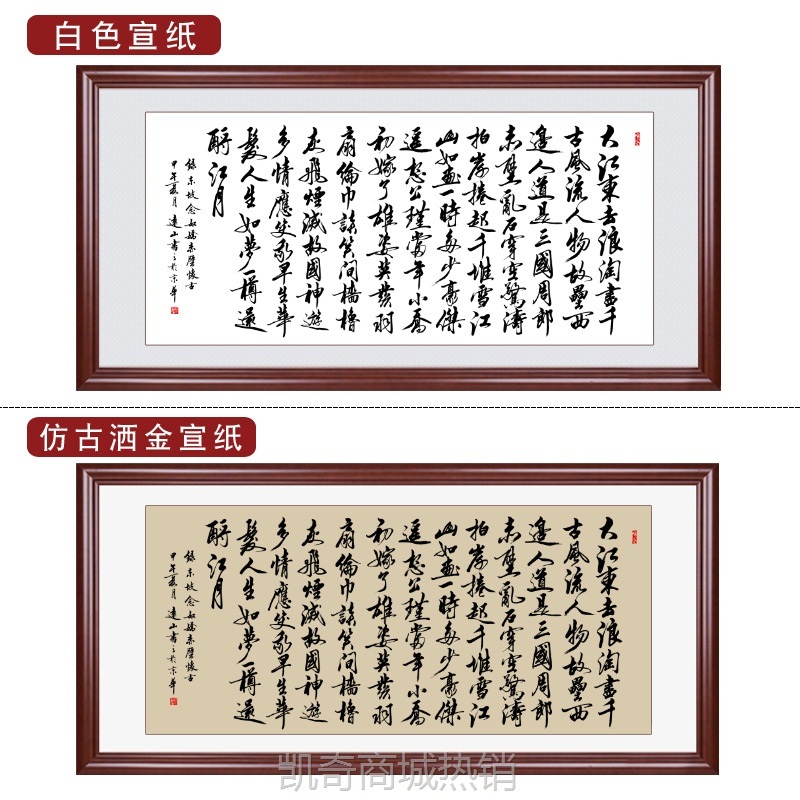 白色宣纸
大江東去浪淘盡千
古風流人物故壘西
邊人道是三國周郎
赤壁亂石穿空驚濤
拍岸捲起千堆雪江
山如畫一時多少豪傑
遥想公瑾當年小喬
初嫁了雄姿英發羽
扇綸巾談笑间檣櫓
灰飛煙滅故國神遊
多情應笑我早生華
髮人生如夢一樽還
酹江月
錄東坡念奴嬌赤壁懷古
甲午夏月 山書之於京華
仿古洒金宣纸
大江東去浪淘盡千
古風流人物故壘西
邊人道是三國周郎
赤壁亂石穿空驚濤
拍岸捲起千堆雪江
山如畫一時多少豪傑
遥想公瑾當年小喬
初嫁了雄姿英發羽
扇綸巾談笑间檣櫓
灰飛煙滅故國神遊
多情應笑我早生華
髮人生如夢一樽還
酹江月
錄東坡念奴嬌赤壁懷古
甲午夏月 山書之於京華
凯奇商城热销